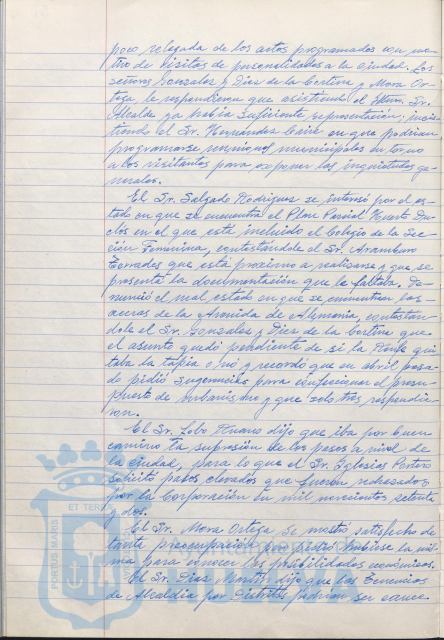 poco relegada de los actos programados con mo-
tivo de visitas de personalidades a la ciudad. Los
señores Gonzalez y Diez de la Cortina y Mora Or-
tega le respondieron que asistiendo el Iltmo. Sr.
Alcalde ya había suficiente representación; insis-
tiendo el Sr. Hernández en que podrían
programarse reuniones municipales en torno
a los visitantes para exponer las inquietudes ge-
nerales.
El Sr. Salgado Rodriguez se interesó por el es-
tado en que se encuentra el Plan Parcial Huerto Du-
clós en el que está incluido el Colegio de la Sec-
ción Femenina, contestándole el Sr. Aramburu
Terrades que está proximo a realizarse y que se
presentó la documentación que le faltaba. De-
nunció el mal estado en que se encuentran las
aceras de la Avenida de Alemania, contestan-
dole el Sr. Gonzalez y Diez de la Cortina que
el asunto quedó pendiente de si la Renfe qui-
taba la tapia o no y recordó que en abril pasa-
do pidió sugerencias para confeccionar el presu-
puesto de Urbanismo y que solo tres respondie-
ron.
El Sr. Lobo Ruano dijo que iba por buen
camino la supresión de los pasos a nivel de
la ciudad, para lo que el Sr. Iglesias Portero
solicitó pasos elevados que fueron rechazados
por la Corporación en mil novecientos setenta
y dos.
El Sr. Mora Ortega se mostró satisfecho de
tanta preocupación por
ma para conocer las posibilidades economicas.
El Sr. Diaz Martín dijo que las Tenencias
de Alcaldía por Distritos podrían ser cauce
PORTUS MARIS ET TERRÆ